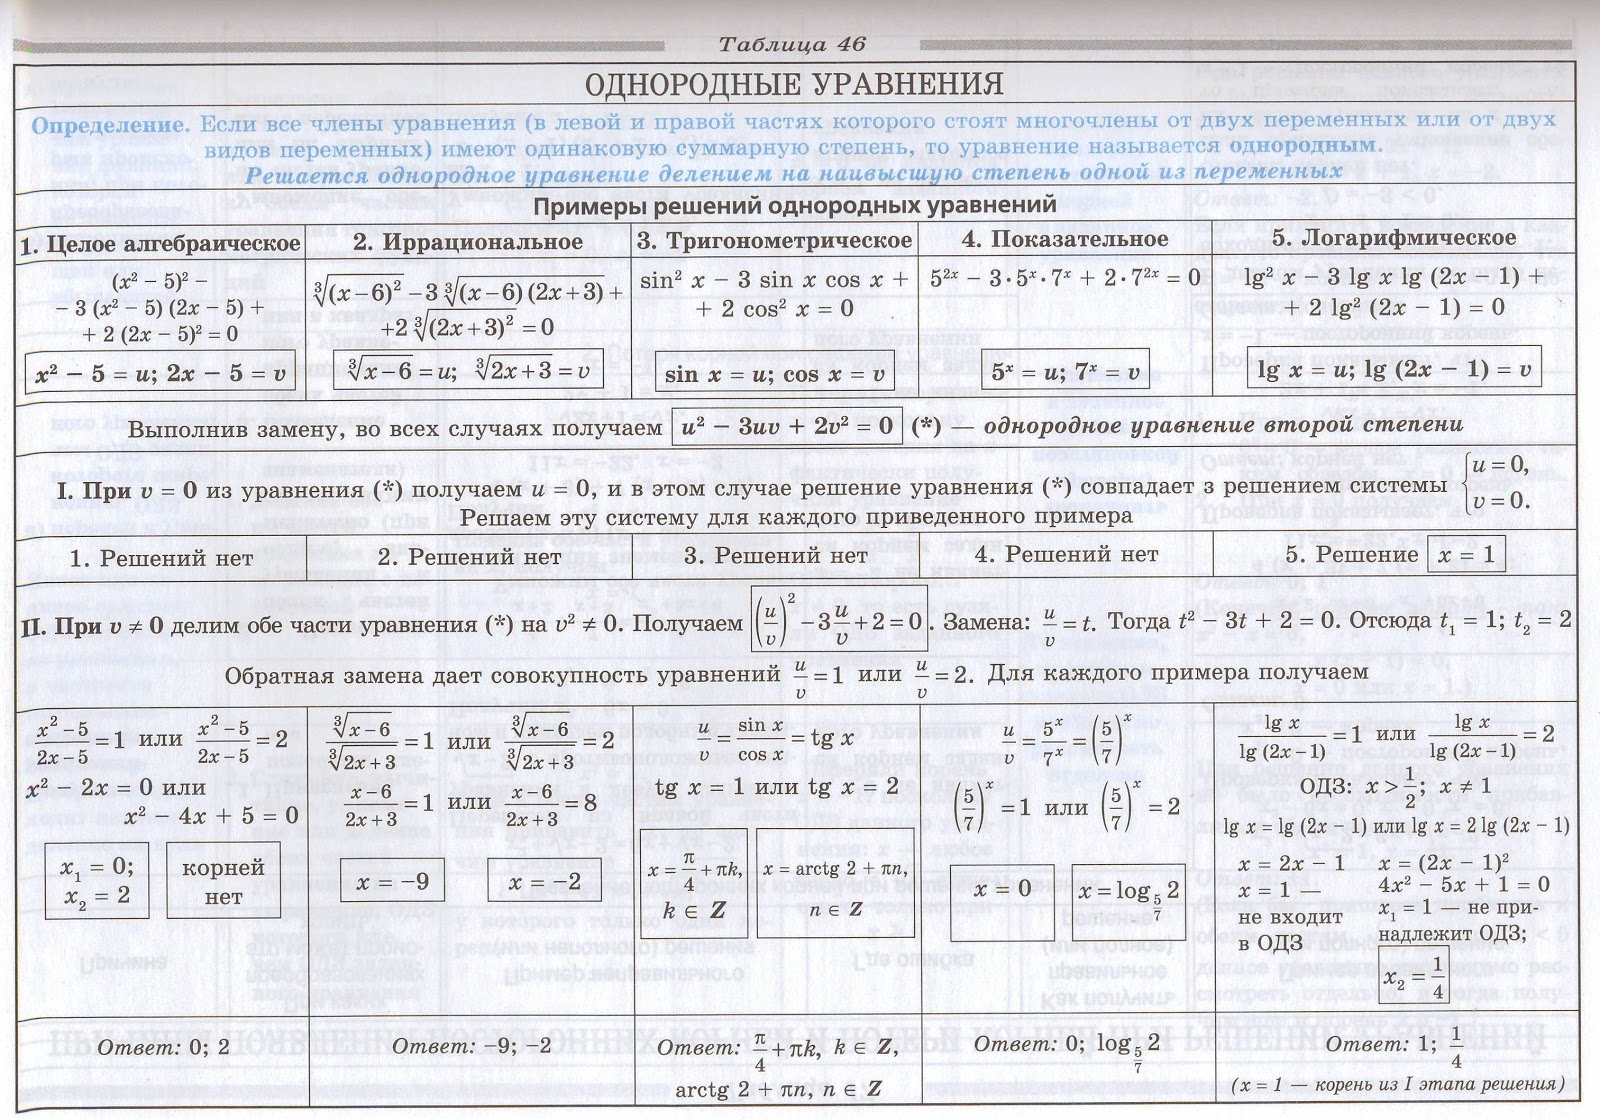 Таблица 46
ОДНОРОДНЫЕ УРАВНЕНИЯ
Определение. Если все члены уравнения (в левой и правой частях которого стоят многочлены от двух переменных или от двух
видов переменных) имеют одинаковую суммарную степень, то уравнение называется однородным.
Решается однородное уравнение делением на наивысшую степень одной из переменных
Примеры решений однородных уравнений
1. Целое алгебраическое
(x² − 5)² −
− 3 (x² − 5) (2x − 5) +
+ 2 (2x − 5)² = 0
x² − 5 = u; 2x − 5 = v
2. Иррациональное
∛(x−6)² −3 ∛(x−6) (2x+3) +
+2 ∛(2x+3)² = 0
∛x−6 = u; ∛2x+3 = v
3. Тригонометрическое
sin² x − 3 sin x cos x +
+ 2 cos² x = 0
sin x = u; cos x = v
4. Показательное
5²ˣ − 3·5ˣ·7ˣ + 2·7²ˣ = 0
5ˣ = u; 7ˣ = v
5. Логарифмическое
lg² x − 3 lg x lg (2x − 1) +
+ 2 lg² (2x − 1) = 0
lg x = u; lg (2x − 1) = v
Выполнив замену, во всех случаях получаем u² − 3uv + 2v² = 0 (*) — однородное уравнение второй степени
I. При v = 0 из уравнения (*) получаем u = 0, и в этом случае решение уравнения (*) совпадает з решением системы {u = 0, v = 0.
Решаем эту систему для каждого приведенного примера
1. Решений нет
2. Решений нет
3. Решений нет
4. Решений нет
5. Решение x = 1
II. При v ≠ 0 делим обе части уравнения (*) на v² ≠ 0. Получаем (u/v)² − 3 u/v + 2 = 0. Замена: u/v = t. Тогда t² − 3t + 2 = 0. Отсюда t₁ = 1; t₂ = 2
Обратная замена дает совокупность уравнений u/v = 1 или u/v = 2. Для каждого примера получаем
x²−5/2x−5 = 1 или x²−5/2x−5 = 2
x² − 2x = 0 или
x² − 4x + 5 = 0
x₁ = 0;
x₂ = 2
корней
нет
∛x−6/∛2x+3 = 1 или ∛x−6/∛2x+3 = 2
x−6/2x+3 = 1 или x−6/2x+3 = 8
x = −9
x = −2
u/v = sin x/cos x = tg x
tg x = 1 или tg x = 2
x = π/4 + πk,
k ∈ Z
x = arctg 2 + πn,
n ∈ Z
u/v = 5ˣ/7ˣ = (5/7)ˣ
(5/7)ˣ = 1 или (5/7)ˣ = 2
x = 0
x = log₅/₇ 2
lg x/lg (2x−1) = 1 или lg x/lg (2x−1) = 2
ОДЗ: x > 1/2; x ≠ 1
lg x = lg (2x − 1) или lg x = 2 lg (2x − 1)
x = 2x − 1
x = 1 —
не входит
в ОДЗ
x = (2x − 1)²
4x² − 5x + 1 = 0
x₁ = 1 — не при-
надлежит ОДЗ;
x₂ = 1/4
Ответ: 0; 2
Ответ: −9; −2
Ответ: π/4 + πk, k ∈ Z,
arctg 2 + πn, n ∈ Z
Ответ: 0; log₅/₇ 2
Ответ: 1; 1/4
(x = 1 — корень из I этапа решения)